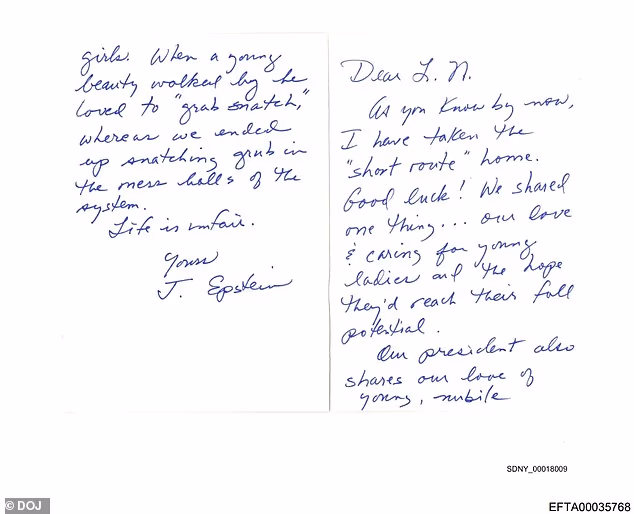 Dear L. N.
As you know by now,
I have taken the
"short route" home.
Good luck! We shared
one thing... our love
& caring for young
ladies and the hope
they'd reach their full
potential.
Our president also
shares our love of
young, nubile
girls. When a young
beauty walked by he
loved to "grab snatch,"
whereas we ended
up snatching grub in
the mess halls of the
system.
Life is unfair.
Yours
J. Epstein
SDNY_00018009
© DOJ
EFTA00035768